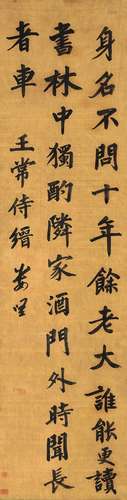 身名不問十年餘老大誰能更讀
書林中獨酌隣家酒門外時聞長
者車
王常侍縉